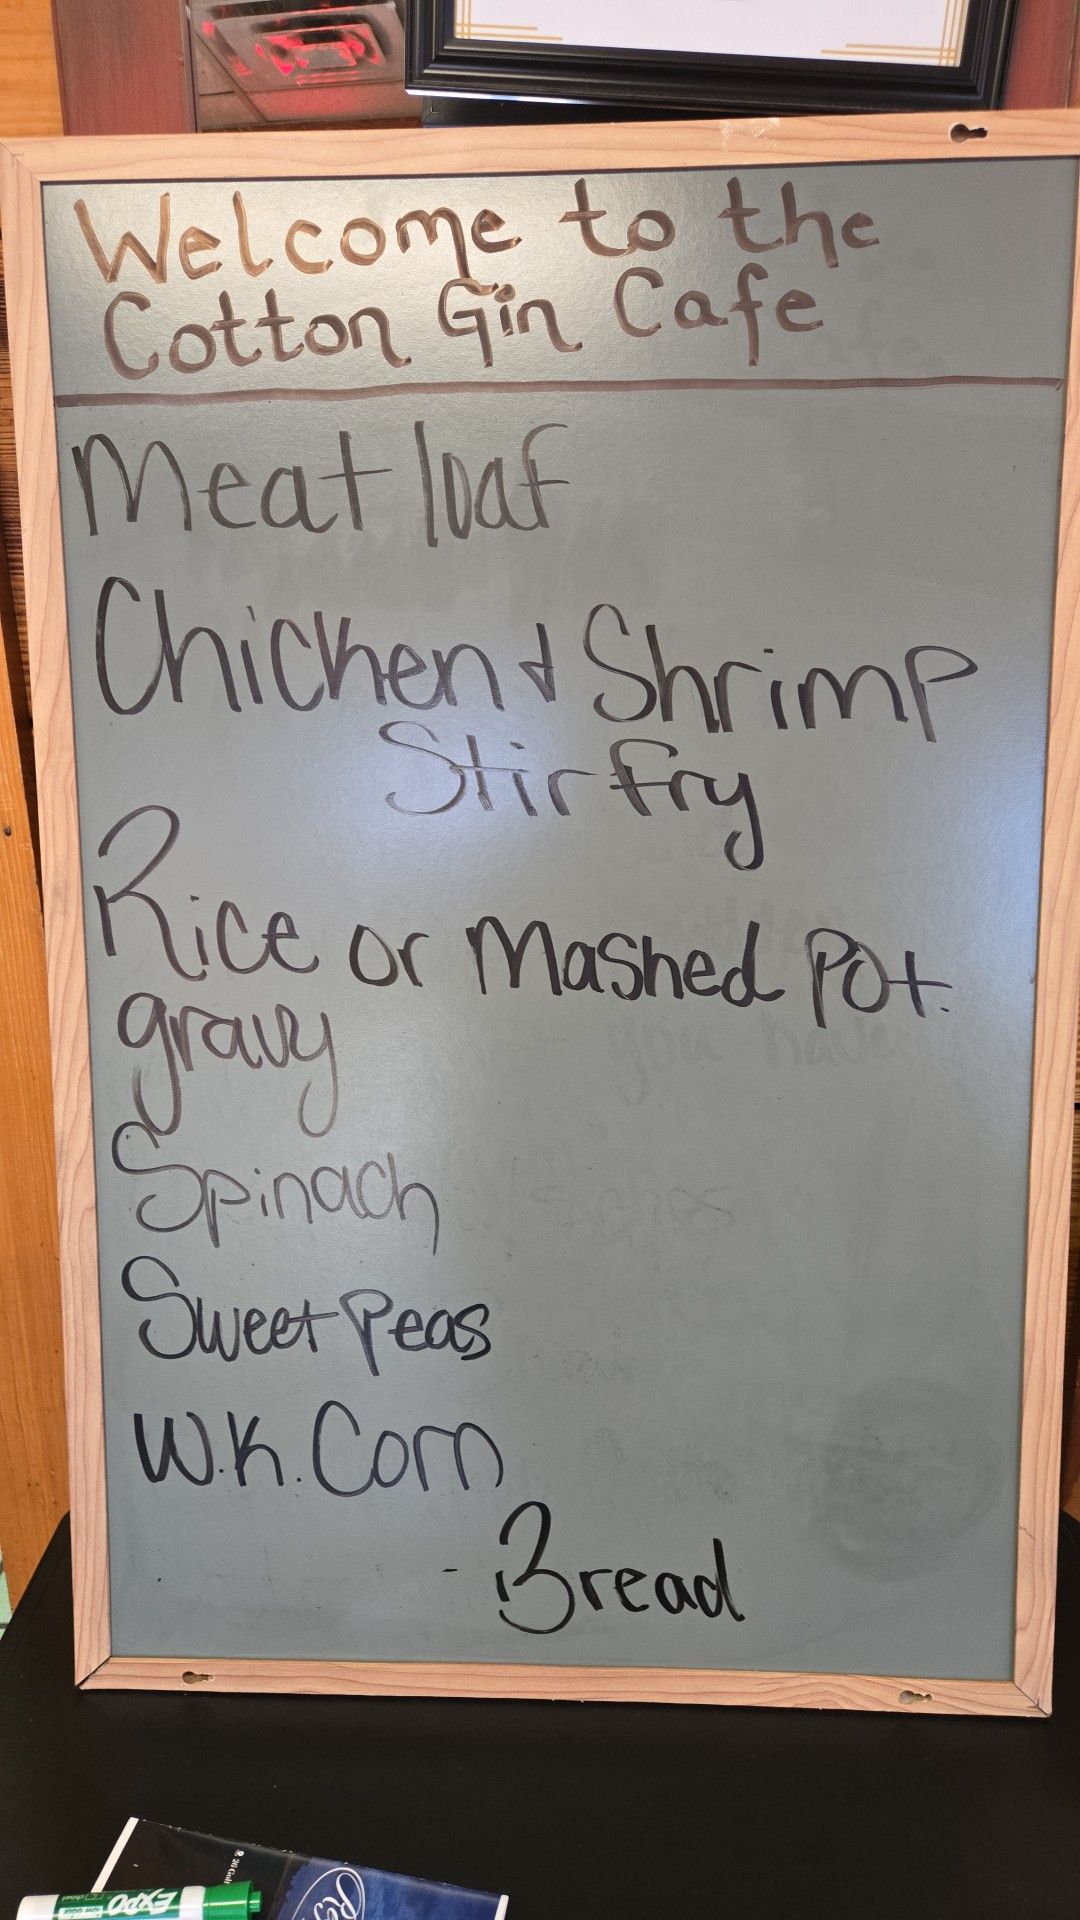 Welcome to the
Cotton Gin Cafe
Meat loaf
Chicken & Shrimp
Stir fry
Rice or Mashed Pot.
gravy
Spinach
Sweet Peas
W.K. Corn
- Bread
EXPO